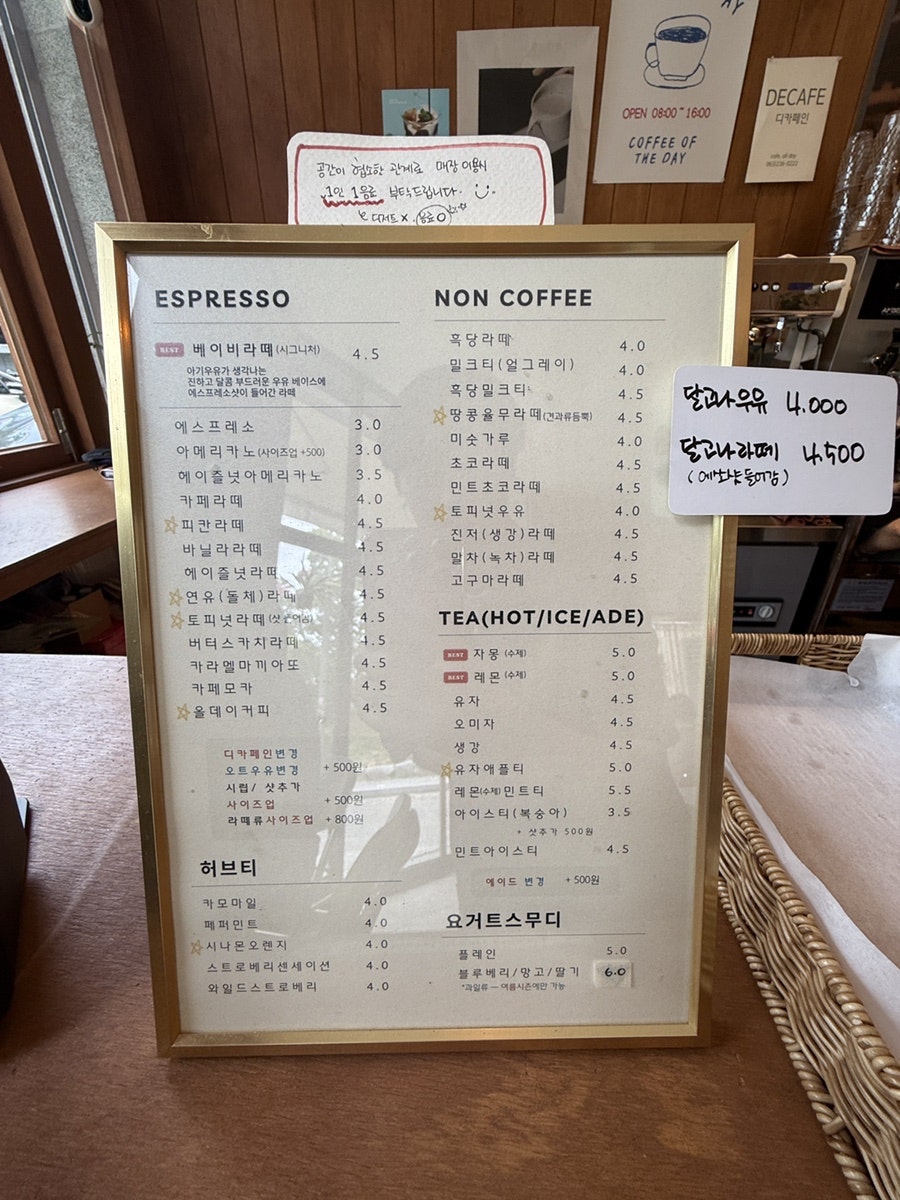 OPEN 08:00~16:00
COFFEE OF
THE DAY
DECAFE
디카페인
공간이 협소한 관계로 매장 이용시
1인 1음료 부탁드립니다.
디저트 X . 음료 O
ESPRESSO
BEST 베이비라떼 (시그니처) 4.5
아기우유가 생각나는
진하고 달콤 부드러운 우유 베이스에
에스프레소샷이 들어간 라떼
에스프레소 3.0
아메리카노 (사이즈업 +500) 3.0
헤이즐넛아메리카노 3.5
카페라떼 4.0
피칸라떼 4.5
바닐라라떼 4.5
헤이즐넛라떼 4.5
연유(돌체)라떼 4.5
토피넛라떼 4.5
버터스카치라떼 4.5
카라멜마끼아또 4.5
카페모카 4.5
올데이커피 4.5
디카페인변경
오트우유변경 +500원
시럽/ 샷추가
사이즈업 +500원
라떼류사이즈업 +800원
허브티
카모마일 4.0
페퍼민트 4.0
시나몬오렌지 4.0
스트로베리센세이션 4.0
와일드스트로베리 4.0
NON COFFEE
흑당라떼 4.0
밀크티(얼그레이) 4.0
흑당밀크티 4.5
땅콩율무라떼(견과류듬뿍) 4.5
미숫가루 4.0
초코라떼 4.5
민트초코라떼 4.5
토피넛우유 4.0
진저(생강)라떼 4.5
말차(녹차)라떼 4.5
고구마라떼 4.5
TEA(HOT/ICE/ADE)
BEST 자몽 (수제) 5.0
BEST 레몬 (수제) 5.0
유자 4.5
오미자 4.5
생강 4.5
유자애플티 5.0
레몬(수제)민트티 5.5
아이스티(복숭아) 3.5
+ 샷추가 500원
민트아이스티 4.5
에이드 변경 +500원
요거트스무디
플레인 5.0
블루베리/망고/딸기 6.0
*과일류 — 여름시즌에만 가능
달고나우유 4.000
달고나라떼 4.500